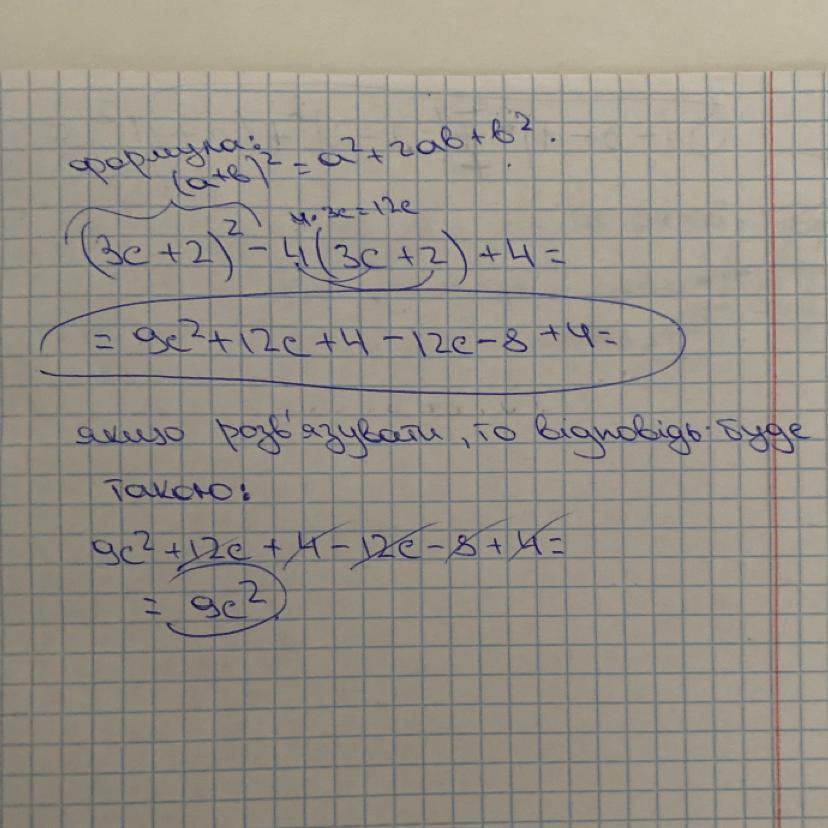 формула:
(a+b)² = a²+2ab+b².
4·3c=12c
(3c+2)²-4(3c+2)+4=
=9c²+12c+4-12c-8+4=
якщо розв'язувати, то відповідь буде
такою:
9c²+12c+4-12c-8+4=
= 9c²